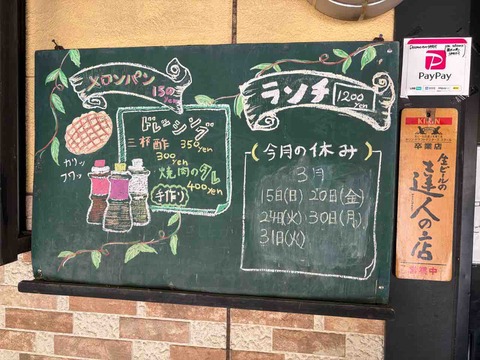 メロンパン
150yen
カリッ
フワッ
ドレッシング
三杯酢 350yen
300yen
焼肉のタレ
400yen
手作り
ランチ
1200yen
今月の休み
3月
15日(日) 20日(金)
24日(火) 30日(月)
31日(火)
PayPay
KIRIN
卒業店
生ビールの
達人の店